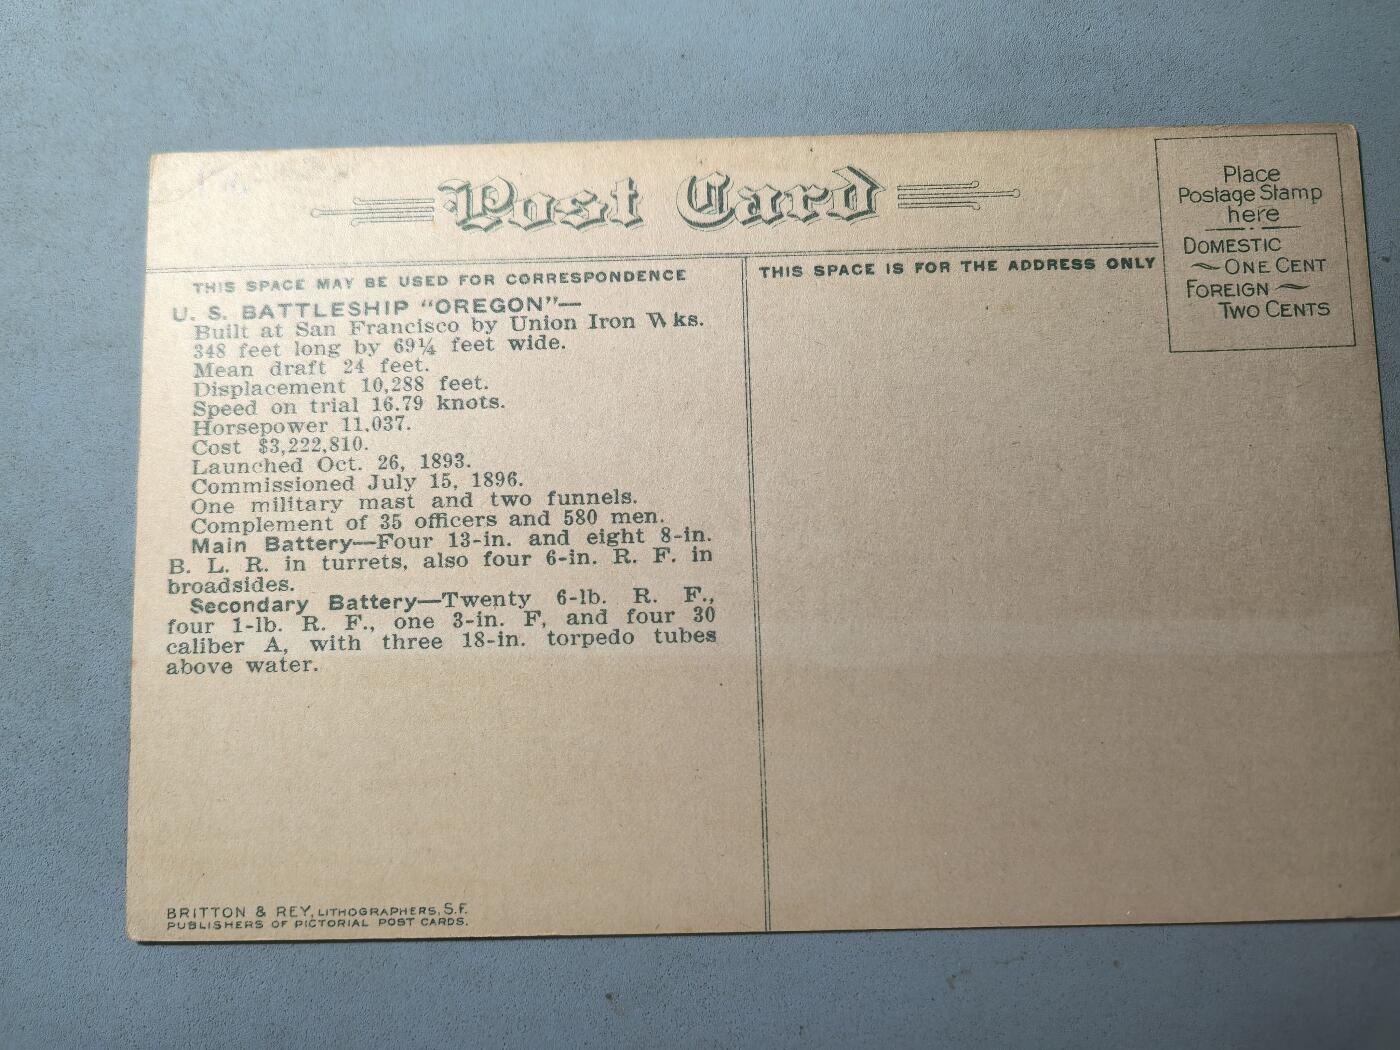 Post Card
Place
Postage Stamp
here
DOMESTIC
ONE CENT
FOREIGN
TWO CENTS
THIS SPACE MAY BE USED FOR CORRESPONDENCE
THIS SPACE IS FOR THE ADDRESS ONLY
U. S. BATTLESHIP "OREGON"—
Built at San Francisco by Union Iron Wks.
348 feet long by 69¼ feet wide.
Mean draft 24 feet.
Displacement 10,288 feet.
Speed on trial 16.79 knots.
Horsepower 11,037.
Cost $3,222,810.
Launched Oct. 26, 1893.
Commissioned July 15, 1896.
One military mast and two funnels.
Complement of 35 officers and 580 men.
Main Battery—Four 13-in. and eight 8-in.
B. L. R. in turrets, also four 6-in. R. F. in
broadsides.
Secondary Battery—Twenty 6-lb. R. F.,
four 1-lb. R. F., one 3-in. F, and four 30
caliber A, with three 18-in. torpedo tubes
above water.
BRITTON & REY, LITHOGRAPHERS, S.F.
PUBLISHERS OF PICTORIAL POST CARDS.